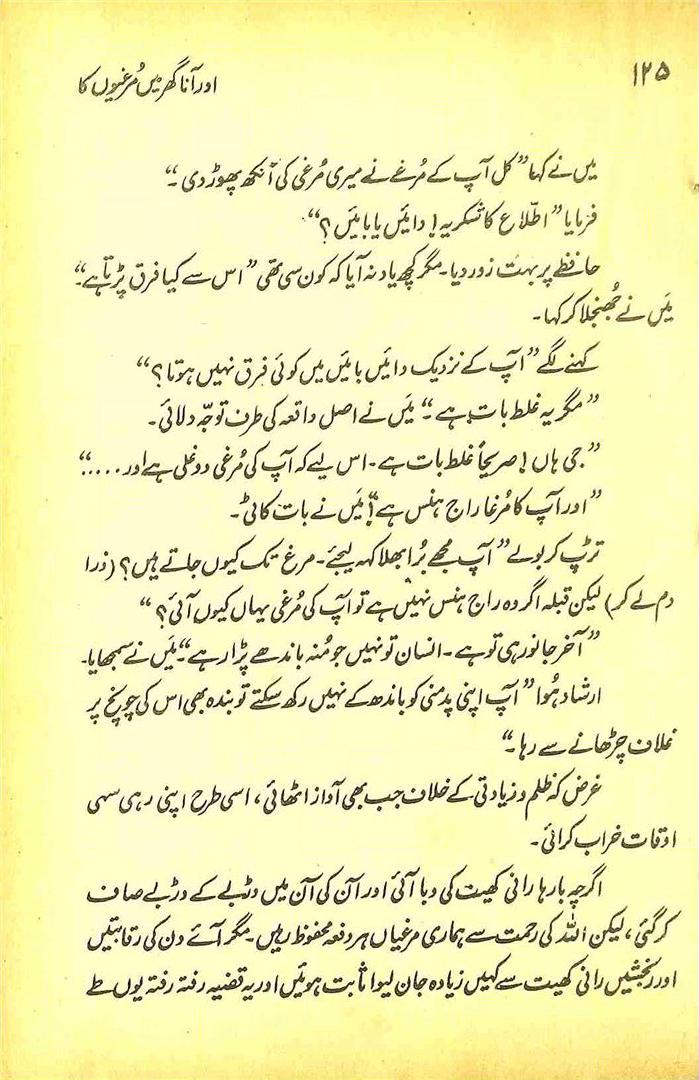 ۱۲۵
اور آنا گھر میں مُرغیوں کا
میں نے کہا ”کل آپ کے مُرغے نے میری مُرغی کی آنکھ پھوڑ دی۔“
فرمایا ”اطّلاع کا شکریہ! دائیں یا بائیں؟“
حافظے پر بہت زور دیا۔ مگر کچھ یاد نہ آیا کہ کون سی تھی ”اس سے کیا فرق پڑتا ہے“
مَیں نے جھُنجلا کر کہا۔
کہنے لگے ”آپ کے نزدیک دائیں بائیں میں کوئی فرق نہیں ہوتا؟“
”مگر یہ غلط بات ہے۔“ مَیں نے اصل واقعہ کی طرف توجّہ دلائی۔
”جی ہاں! صریحاً غلط بات ہے۔ اس لیے کہ آپ کی مُرغی دوغلی ہے اور ....“
”اور آپ کا مُرغا راج ہنس ہے؟“ مَیں نے بات کاٹی۔
تڑپ کر بولے ”آپ مجھے بُرا بھلا کہہ لیجئے۔ مرغ تک کیوں جاتے ہیں؟ (ذرا
دم لے کر) لیکن قبلہ اگر وہ راج ہنس نہیں ہے تو آپ کی مُرغی یہاں کیوں آئی؟“
”آخر جانور ہی تو ہے۔ انسان تو نہیں جو مُنہ باندھے پڑا رہے“۔ مَیں نے سمجھایا۔
ارشاد ہُوا ”آپ اپنی پدمنی کو باندھ کے نہیں رکھ سکتے تو بندہ بھی اس کی چونچ پر
غلاف چڑھانے سے رہا۔“
غرض کہ ظلم و زیادتی کے خلاف جب بھی آواز اٹھائی، اسی طرح اپنی رہی سہی
اوقات خراب کرائی۔
اگرچہ بارہا رانی کھیت کی وبا آئی اور آن کی آن میں دڑبے کے دڑبے صاف
کر گئی، لیکن اللہ کی رحمت سے ہماری مرغیاں ہر دفعہ محفوظ رہیں۔ مگر آئے دن کی رقابتیں
اور رنجشیں رانی کھیت سے کہیں زیادہ جان لیوا ثابت ہوئیں اور یہ قضیہ رفتہ رفتہ یوں طے